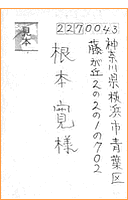 見本
2270043
神奈川県横浜市青葉区
藤が丘2の2の1の702
根本寛様